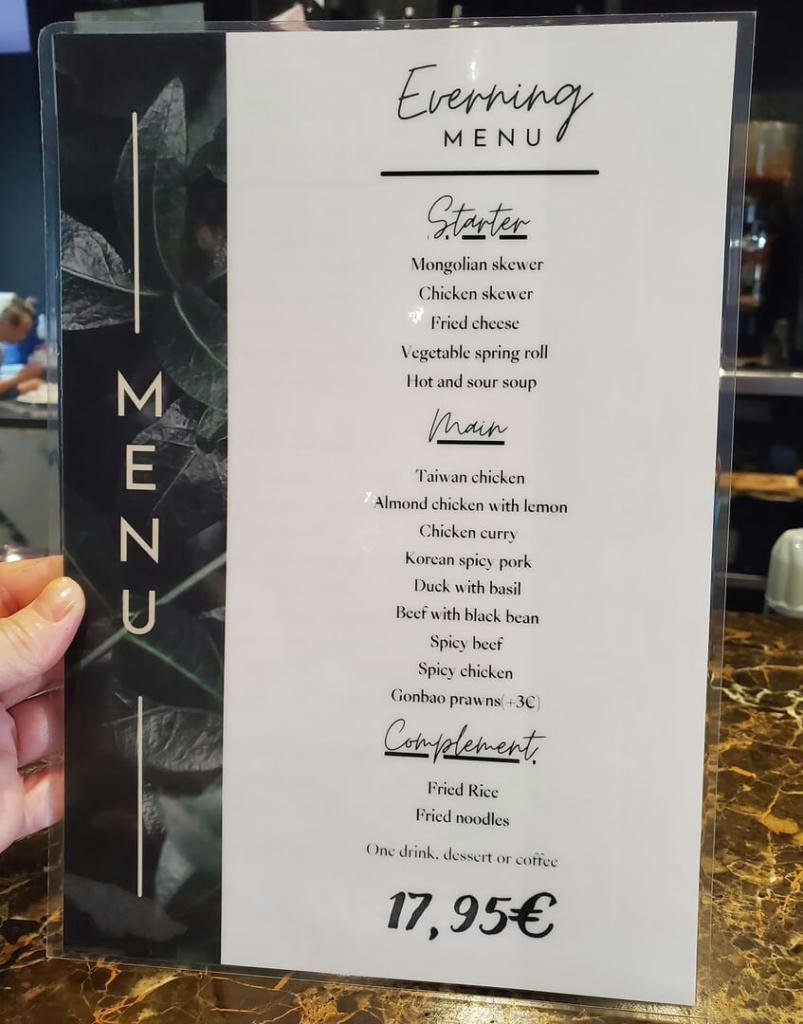 MENU
Everning
MENU
Starter
Mongolian skewer
Chicken skewer
Fried cheese
Vegetable spring roll
Hot and sour soup
Main
Taiwan chicken
Almond chicken with lemon
Chicken curry
Korean spicy pork
Duck with basil
Beef with black bean
Spicy beef
Spicy chicken
Gonbao prawns(+3€)
Complement
Fried Rice
Fried noodles
One drink, dessert or coffee
17,95€